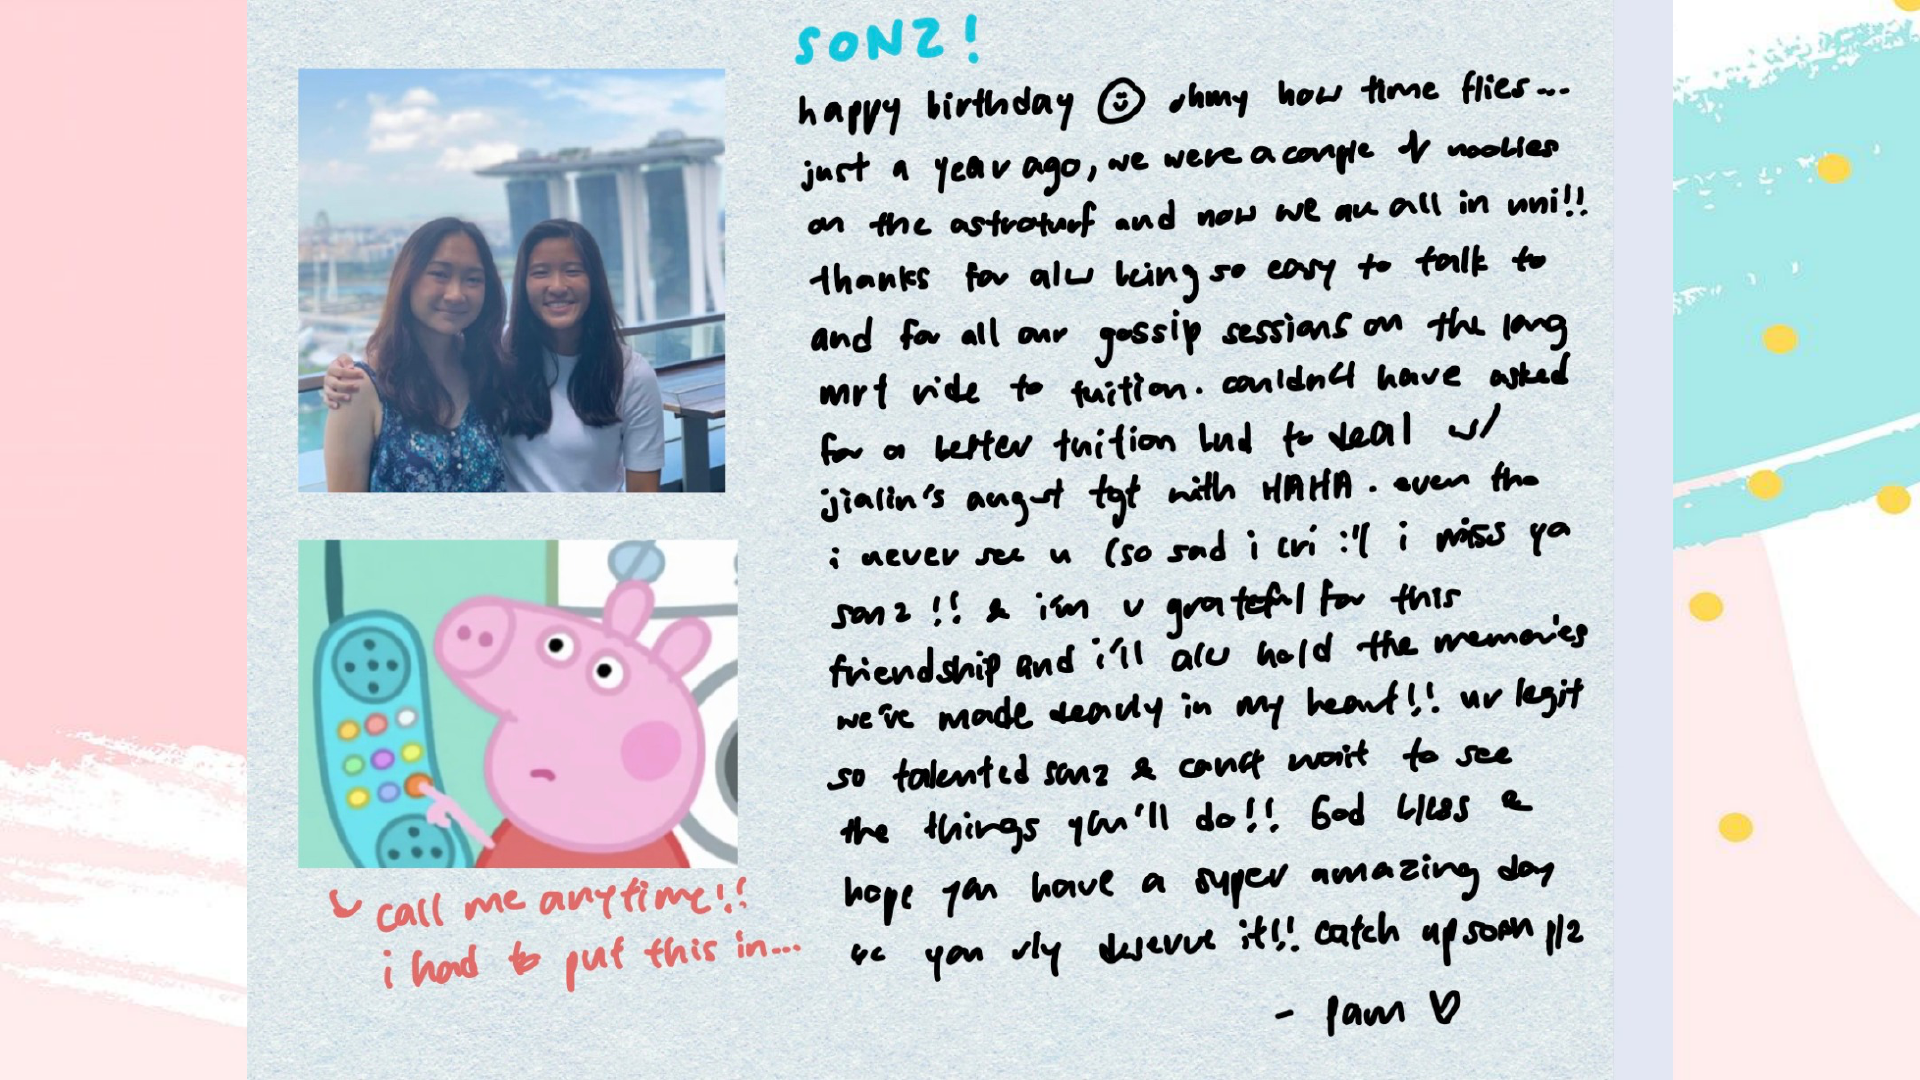 SONZ!
happy birthday ohmy how time flies...
just a year ago, we were a couple of noobies
on the astroturf and now we are all in uni!!
thanks for alw being so easy to talk to
and for all our gossip sessions on the long
mrt ride to tuition. couldn't have asked
for a better tuition bud to deal w/
jialin's angst tgt with HAHA. even tho
i never see u (so sad i cri :'( i miss ya
sonz!! & i'm v grateful for this
friendship and i'll alw hold the memories
we've made dearly in my heart!! ur legit
so talented sonz & can't wait to see
the things you'll do!! God bless &
hope you have a super amazing day
bc you rly deserve it!! catch up soon plz
- pam ♡
call me anytime!!
i had to put this in...